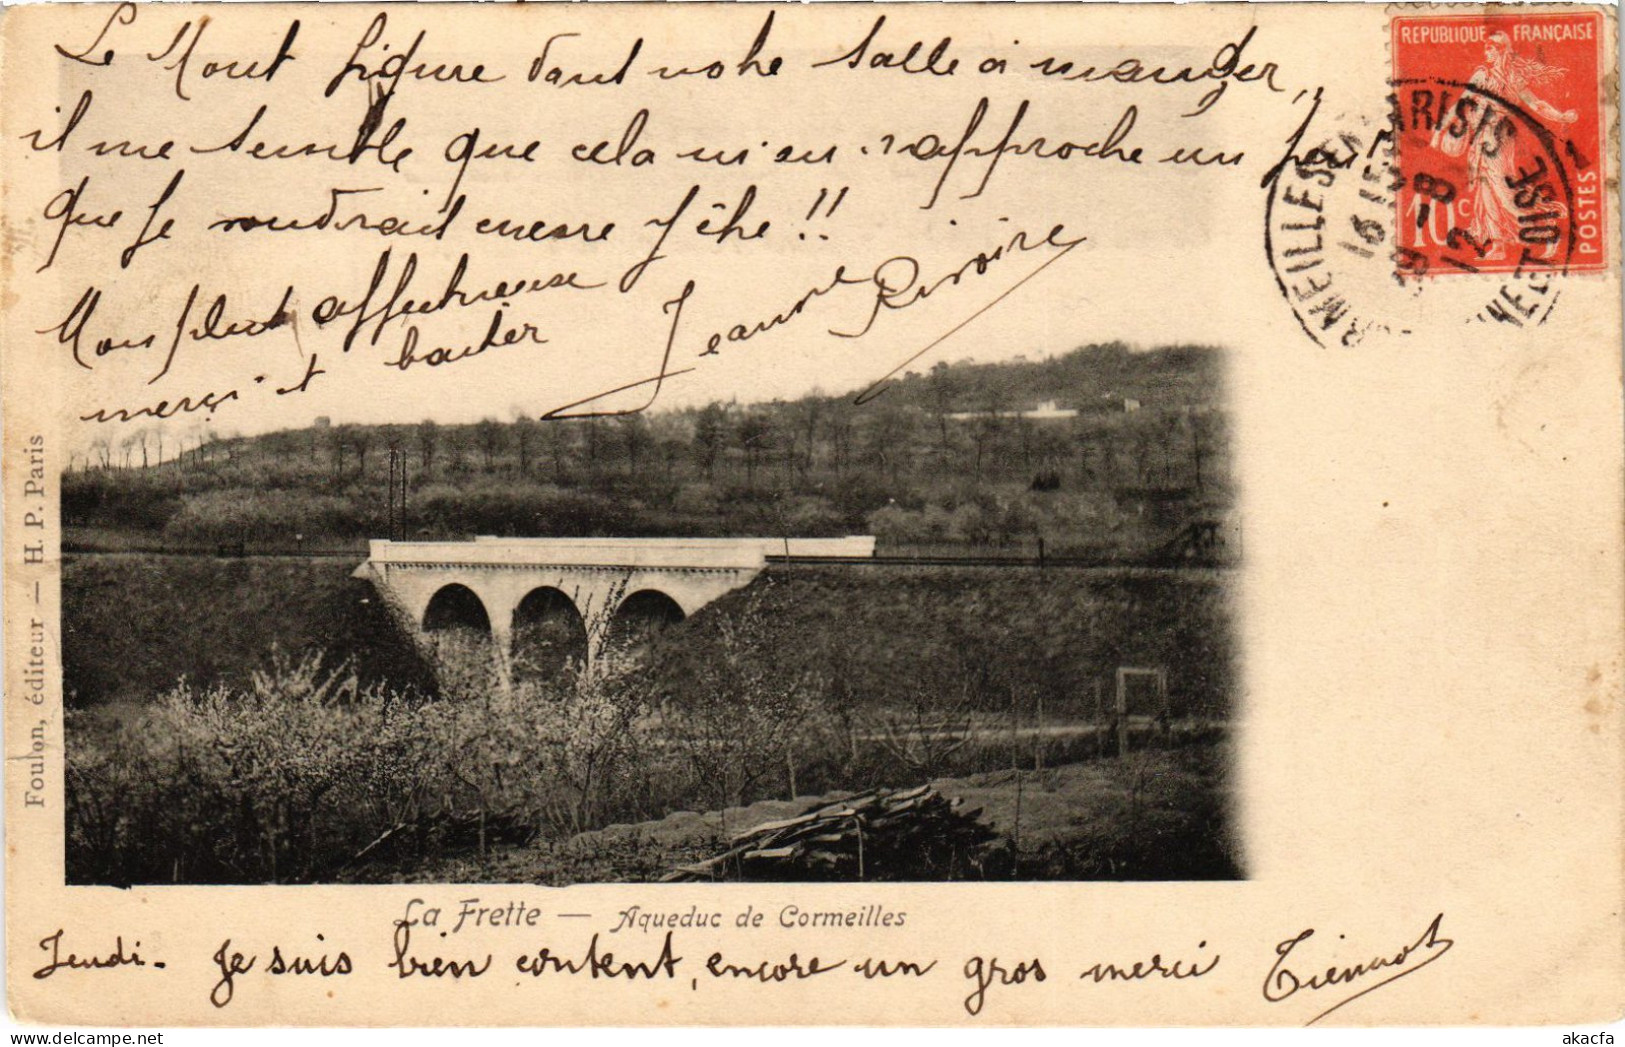 Le Mont figure dans notre salle à manger,
il me semble que cela m'en rapproche un peu
que je voudrais encore y être !!
Mon plus affectueux
merci et baiser
Jeanne Rivoire
RÉPUBLIQUE FRANÇAISE
10c
POSTES
CORMEILLES EN PARISIS
SEINE ET OISE
16 15
8 - 8
12
Foulon, éditeur — H. P. Paris
La Frette — Aqueduc de Cormeilles
Jeudi - Je suis bien content, encore un gros merci
akacfa